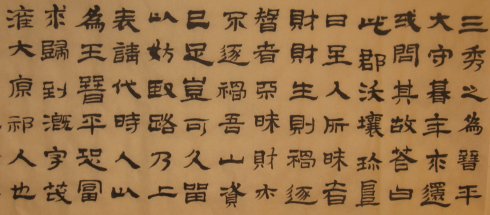 三秀之為晉平
大守朞年求還
或問其故荅曰
此郡沃壤珍阜
日至人所昧者
財財生則禍逐
智者不昧財亦
不逐禍吾山資
已足豈可久留
以妨賢路乃上
表請代時人以
為王晉平恐富
求歸到溉字茂
灌大原祁人也